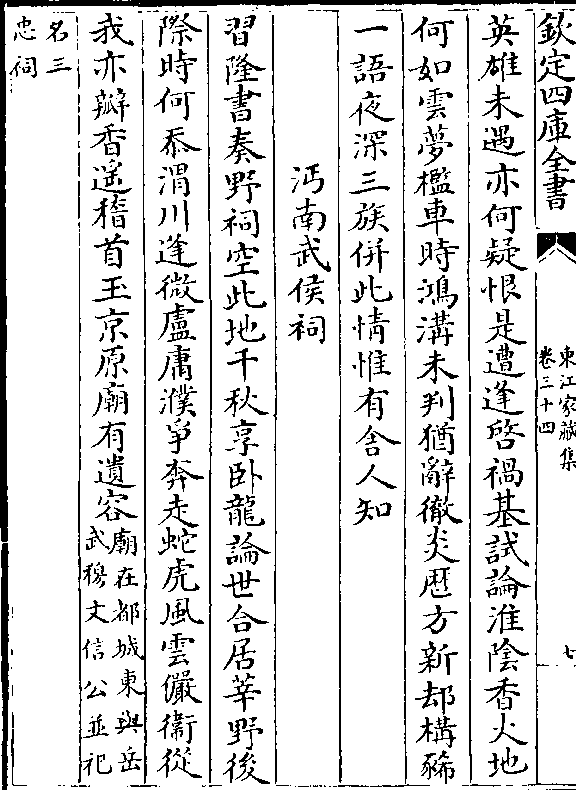 欽定四庫全書
東江家藏集
卷三十四
七
英雄未遇亦何疑恨是遭逢啓禍基試論淮陰香火地
何如雲夢檻車時鴻溝未判猶辭徹炎厯方新却構豨
一語夜深三族併此情惟有舍人知
沔南武侯祠
習隆書奏野祠空此地千秋享卧龍論世合居莘野後
際時何忝渭川逢微盧庸濮爭奔走蛇虎風雲儼衞從
我亦瓣香遥稽首玉京原廟有遺容廟在都城東與岳
武穆文信公並祀
名三
忠祠